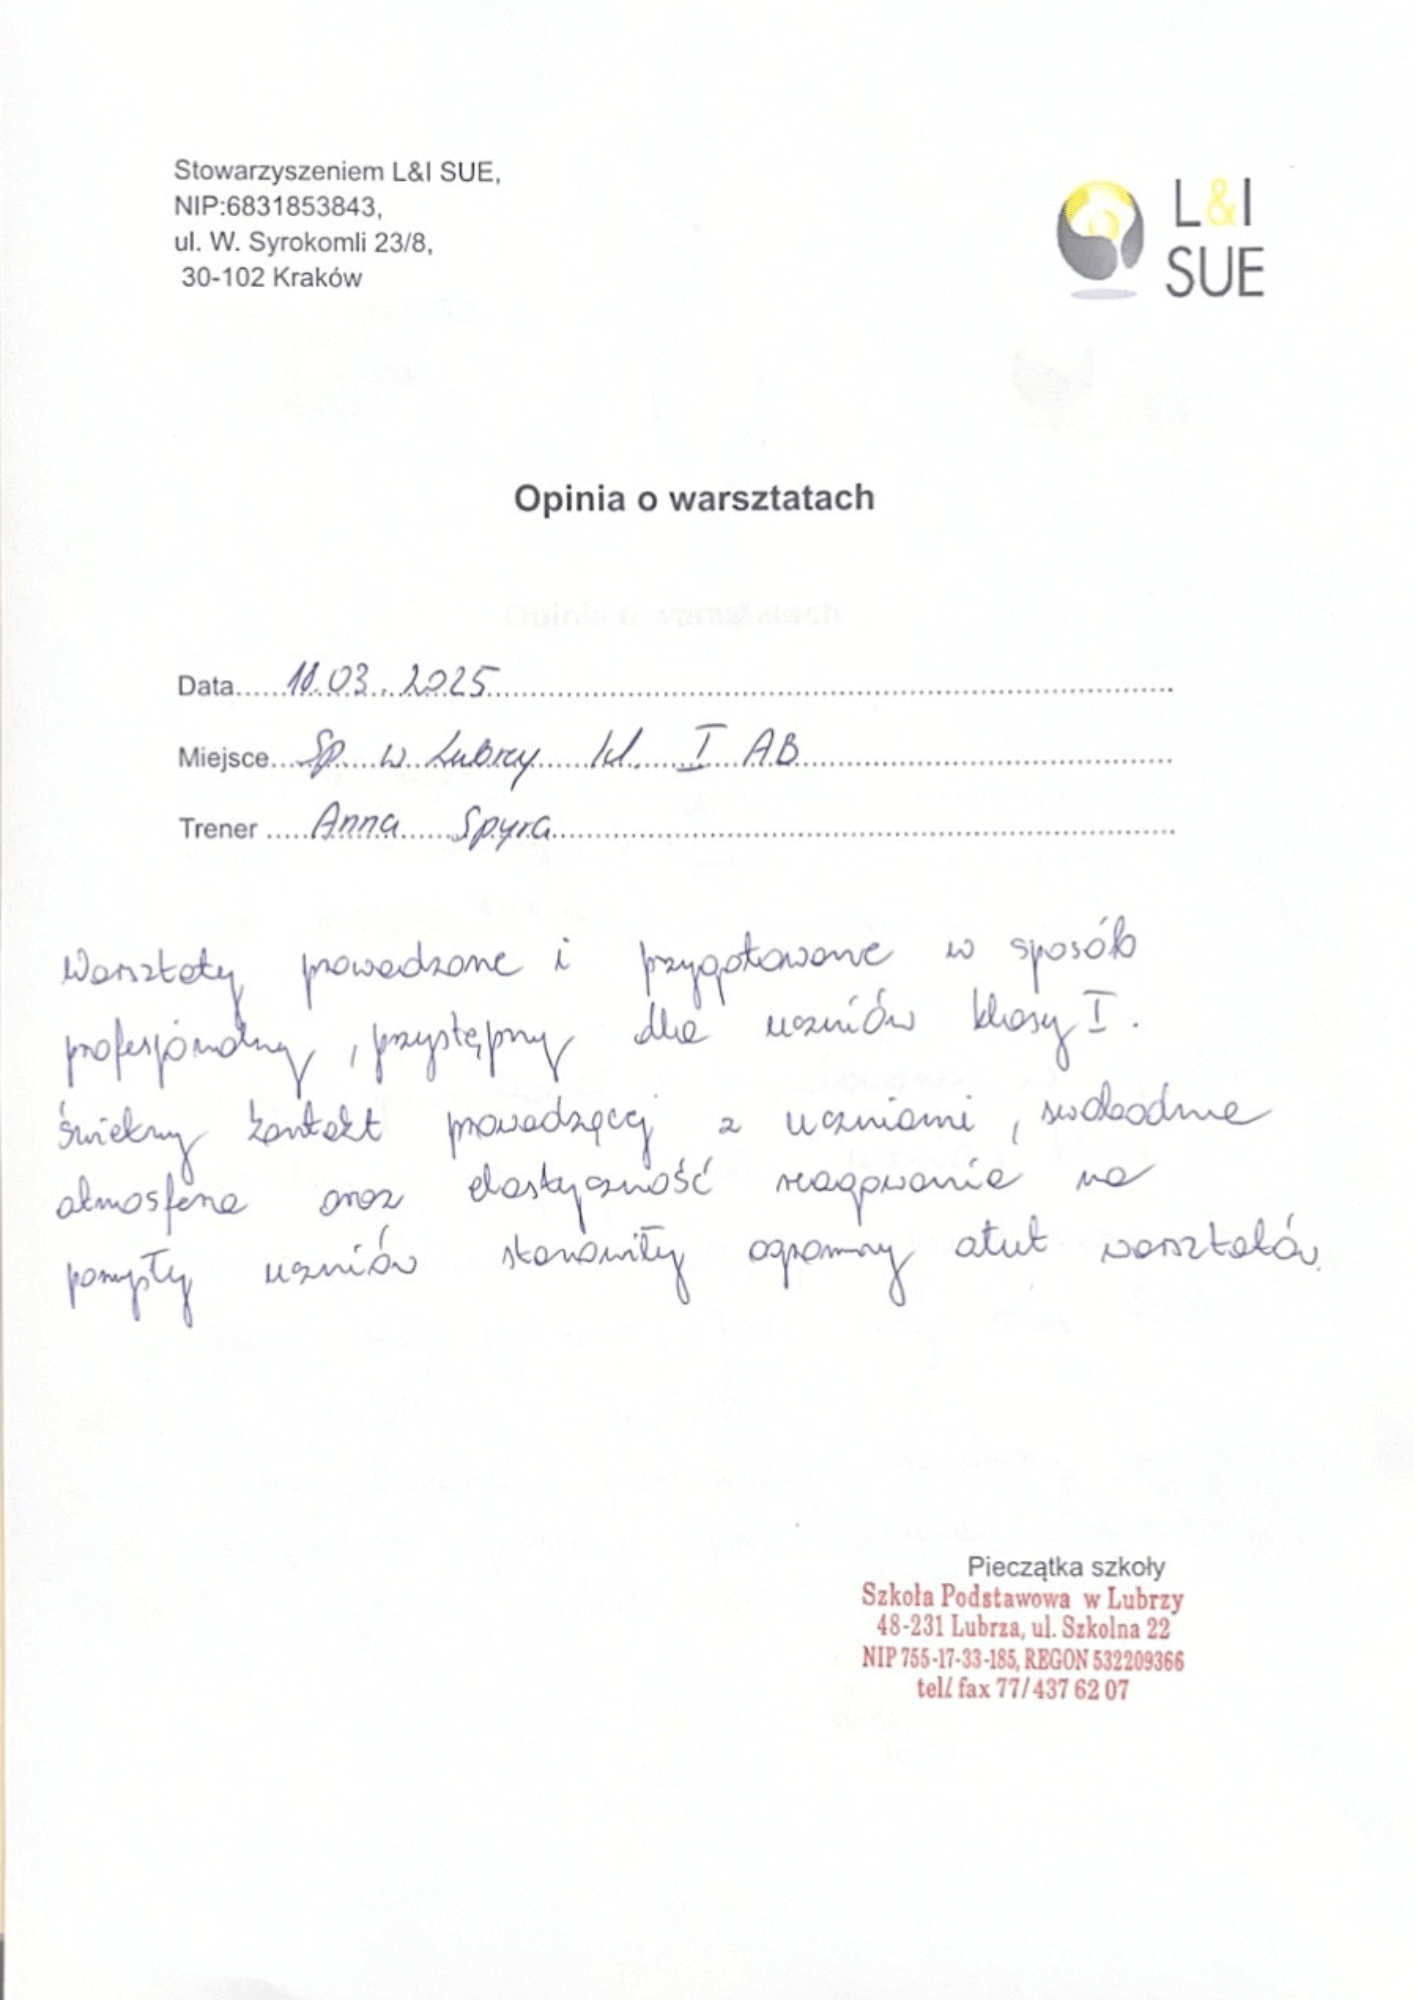 Stowarzyszeniem L&I SUE,
NIP:6831853843,
ul. W. Syrokomli 23/8,
30-102 Kraków
L&I
SUE
Opinia o warsztatach
Data 18.03.2025
Miejsce Sp. w Lubrzy kl. I AB
Trener Anna Spyra
Warsztaty prowadzone i przygotowane w sposób
profesjonalny, przystępny dla uczniów klasy I.
Świetny kontakt prowadzącej z uczniami, swobodna
atmosfera oraz elastyczność reagowania na
pomysły uczniów stanowiły ogromny atut warsztatów.
Pieczątka szkoły
Szkoła Podstawowa w Lubrzy
48-231 Lubrza, ul. Szkolna 22
NIP 755-17-33-185, REGON 532209366
tel/ fax 77/ 437 62 07